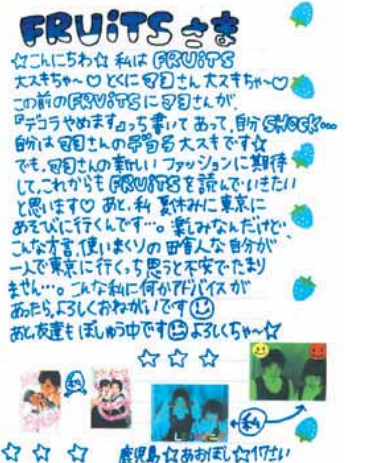 FRUiTS さま
☆こんにちわ☆ 私は FRUiTS
大スキちゃ〜♡ とくにマヨさん 大スキちゃ〜♡
この前のFRUiTSにマヨさんが、
『デコラやめます』っち書いてあって、自分 SHOCK…
自分はマヨさんのデコラ大スキです☆
でも、マヨさんの新しいファッションに期待
して、これからもFRUiTSを読んでいきたい
と思います♡ あと、私 夏休みに東京に
あそびに行くんです…。楽しみなんだけど、
こんな方言、使いまくりの田舎人な自分が
一人で東京に行くっち思うと不安でたまり
ません…。こんな私に何かアドバイスが
あったら、よろしくおねがいです
あと友達もぼしゅう中です よろしくちゃ〜☆
☆ ☆ ☆
私
私
☆ ☆ ☆ 鹿児島☆あおぼし☆17さい